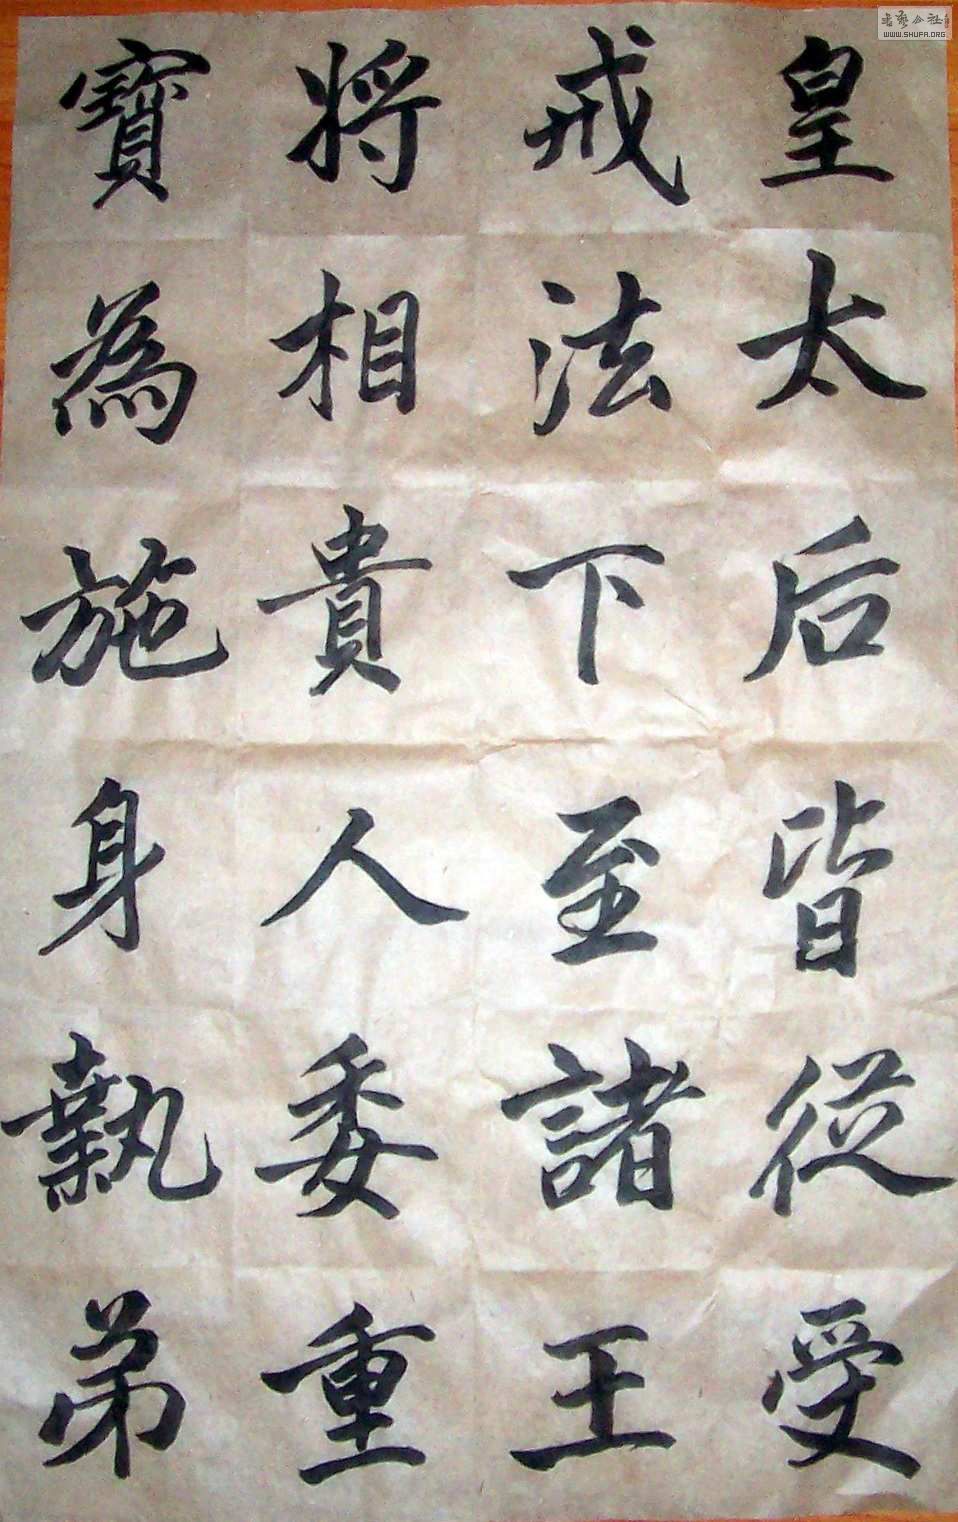 皇太后皆從受
戒法下至諸王
將相貴人委重
寶為施身執弟
WWW.SHUFA.ORG